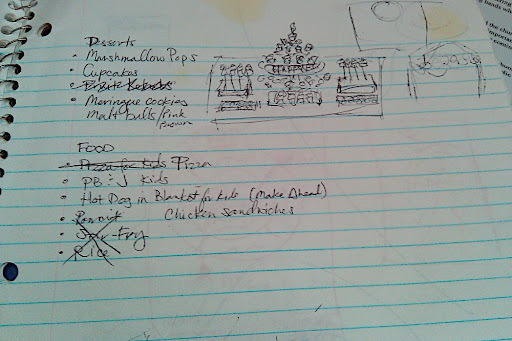 Desserts
• Marshmallow Pops
• Cupcakes
• Fruit Kebabs
• Meringue cookies
Malt balls/Pink
Brown
FOOD
• Pizza for kids Pizza
• PB & J Kids
• Hot Dog in Blanket for kids (Make Ahead)
Chicken Sandwiches
• Stir-Fry
• Rice